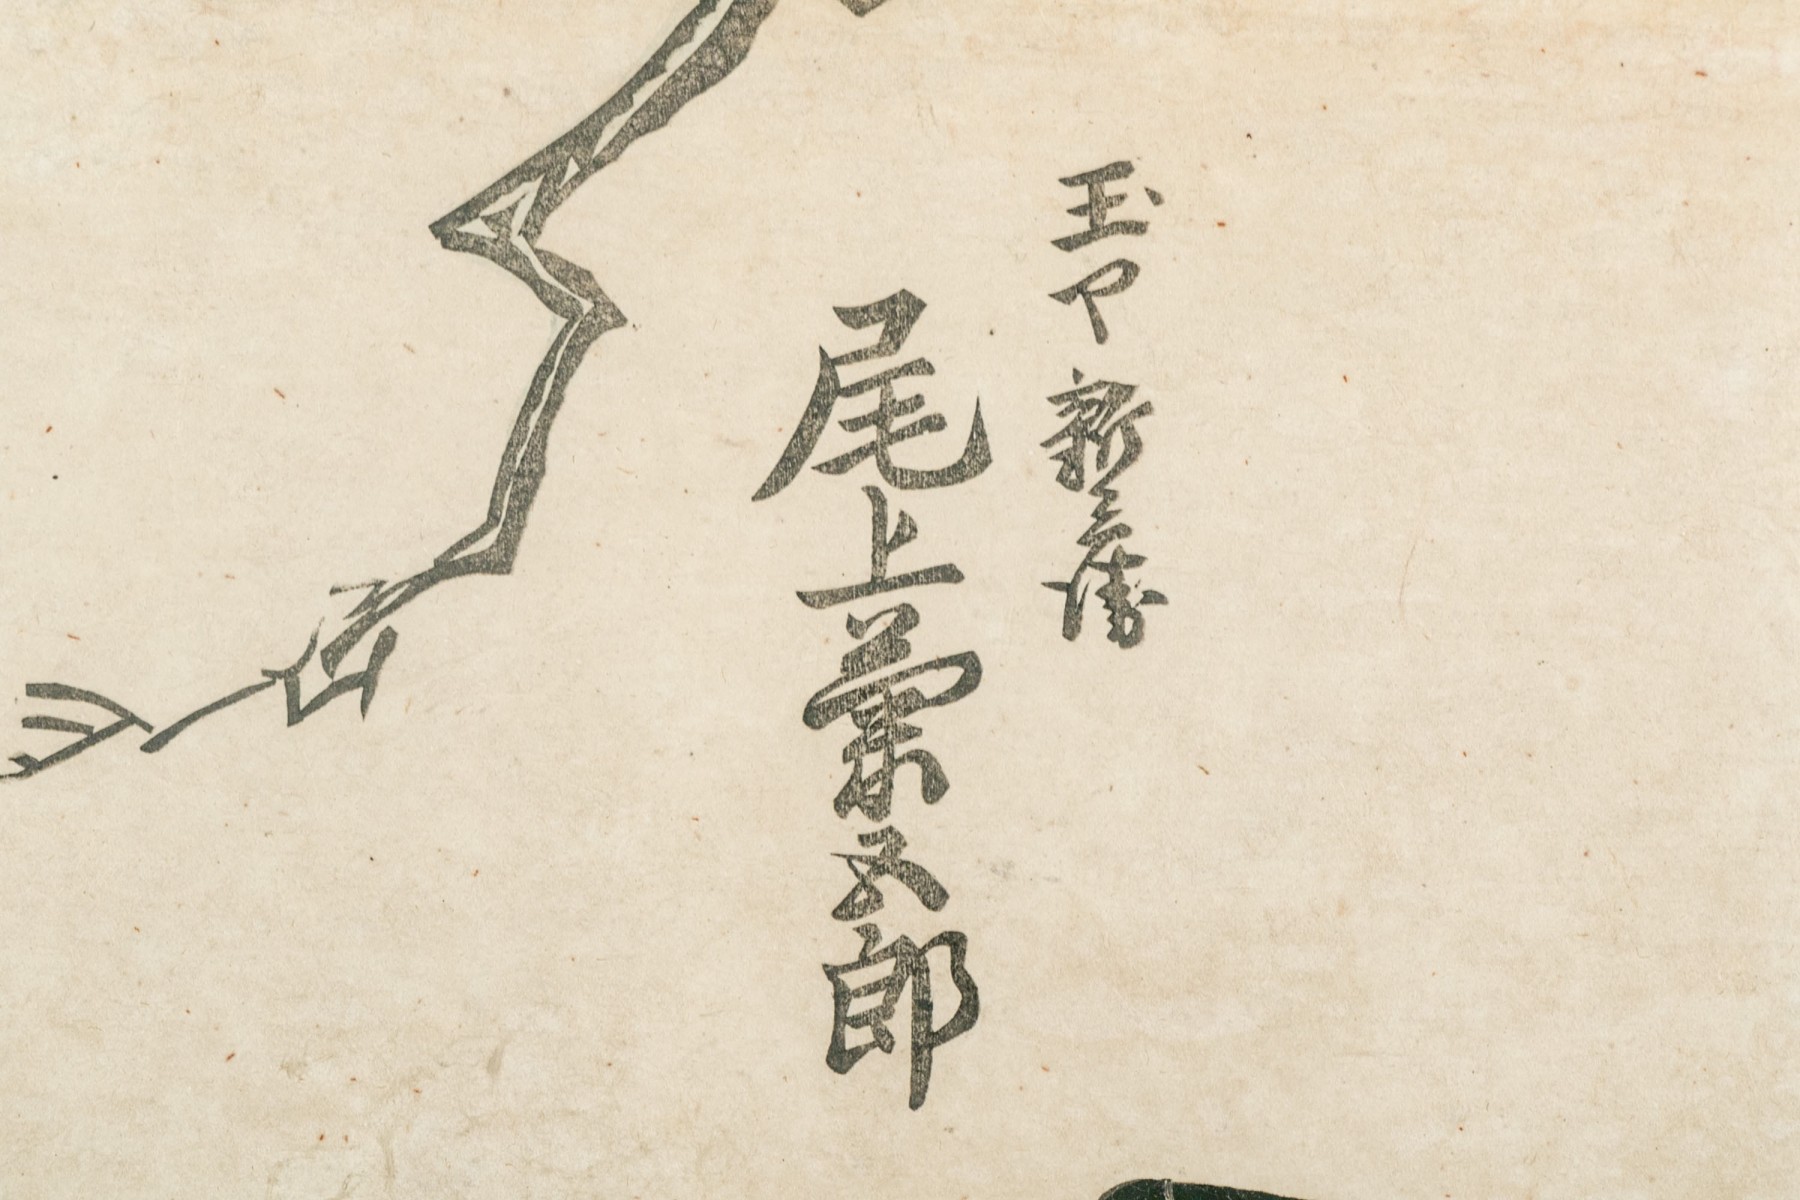 玉や新兵衛
尾上菊五郎